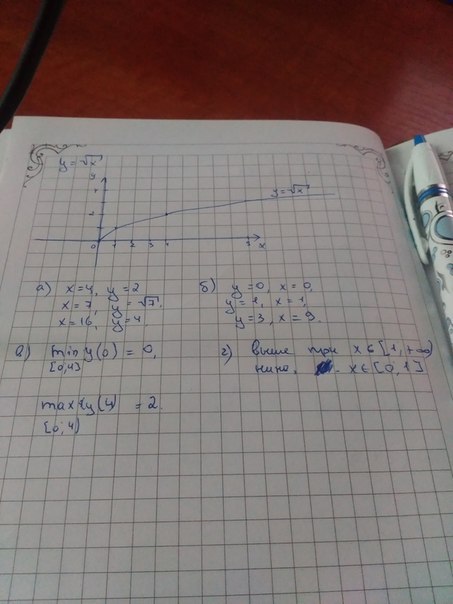 y = √x
y
y = √x
0 1 2 3 4 9 x
а) x=4, y=2
x=7, y=√7.
x=16, y=4
б) y=0, x=0,
y=1, x=1,
y=3, x=9.
в) min y(0) = 0,
[0,4]
max y(4) = 2.
[0,4)
г) выше при x∈[1,+∞)
ниже x∈[0,1]